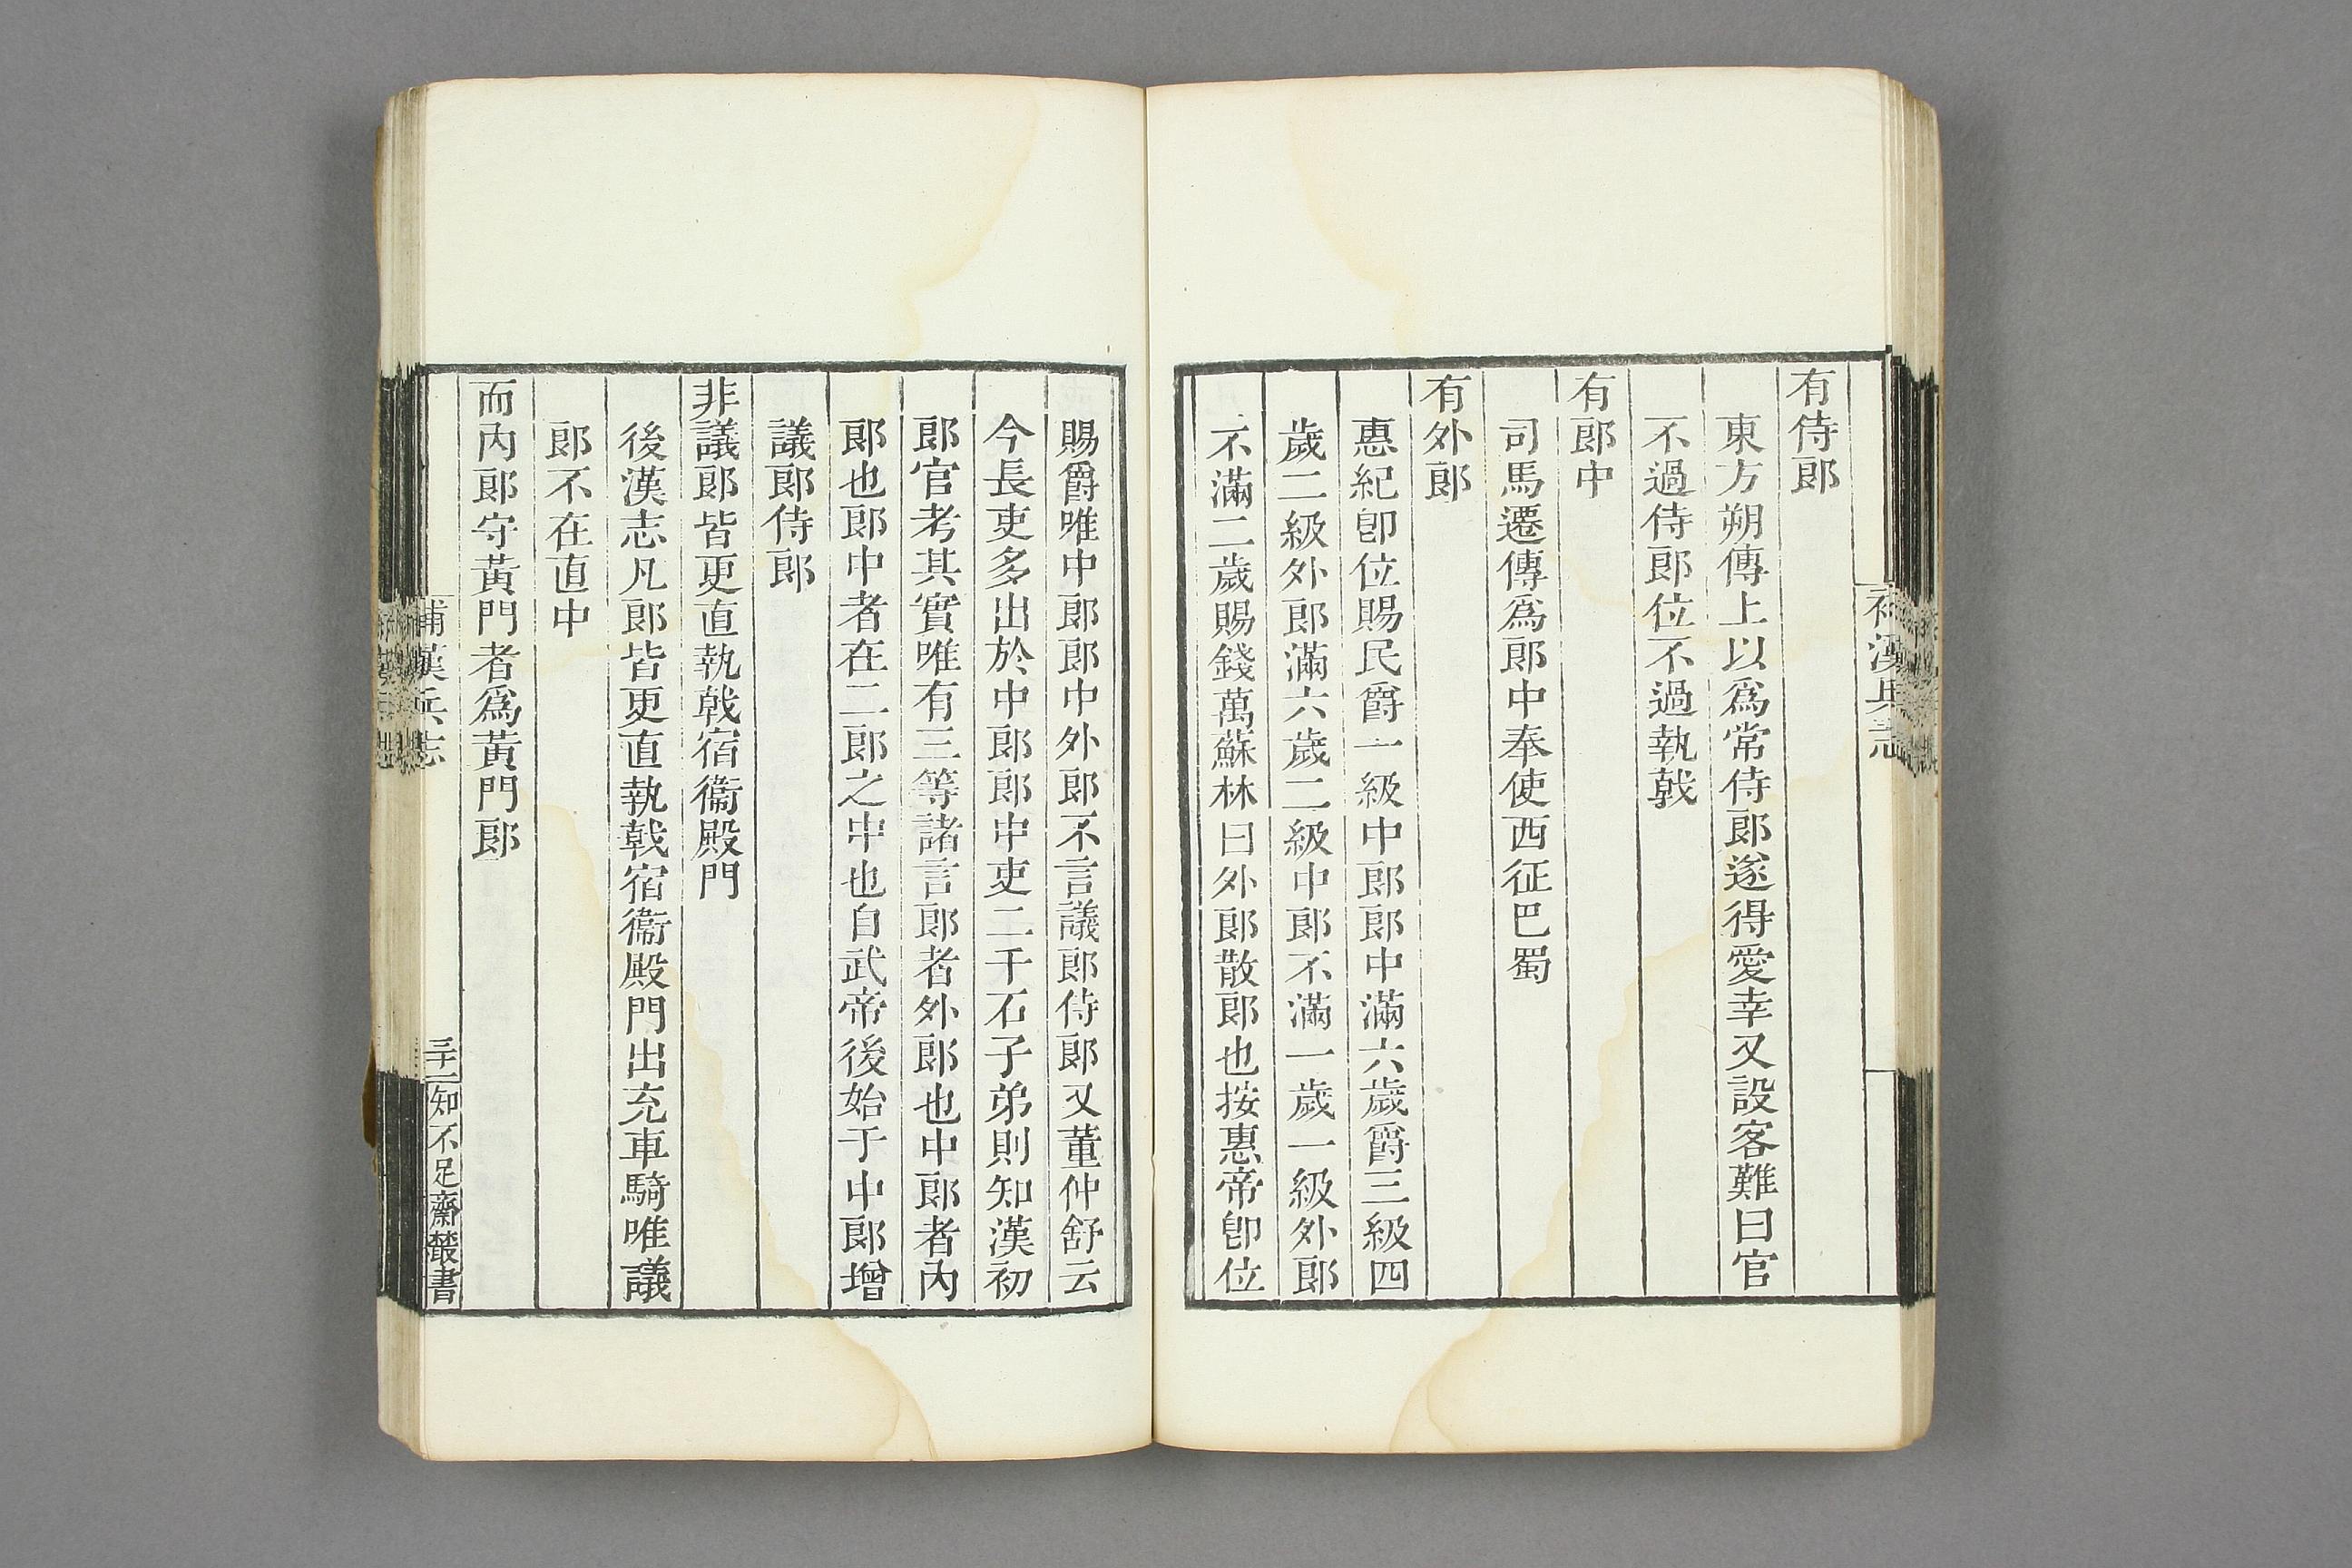 有侍郎
東方朔傳上以爲常侍郎遂得愛幸又設客難曰官
不過侍郎位不過執戟
有郎中
司馬遷傳爲郎中奉使西征巴蜀
有外郎
惠紀卽位賜民爵一級中郎郎中滿六歲爵三級四
歲二級外郎滿六歲二級中郎不滿一歲一級外郎
不滿二歲賜錢萬蘇林曰外郎散郎也按惠帝卽位
賜爵唯中郎郎中外郎不言議郎侍郎又董仲舒云
今長吏多出於中郎郎中吏二千石子弟則知漢初
郎官考其實唯有三等諸言郎者外郎也中郎者內
郎也郎中者在二郎之中也自武帝後始于中郎增
議郎侍郎
非議郎皆更直執戟宿衞殿門
後漢志凡郎皆更直執戟宿衞殿門出充車騎唯議
郎不在直中
而內郎守黃門者爲黃門郎
補漢兵志
三十一
知不足齋叢書